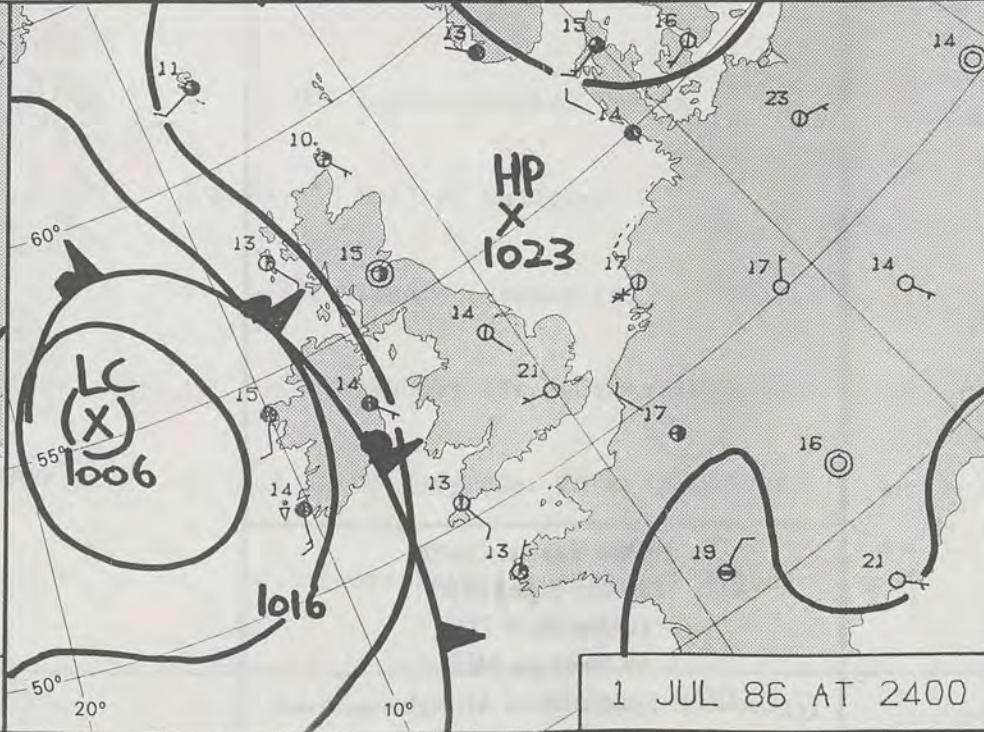 13
15
16
14
11
23
14
10
HP
X
1023
60°
13
15
17
17
14
14
LC
(X)
1006
21
15
14
55°
17
16
14
13
13
19
21
1016
50°
20°
10°
1 JUL 86 AT 2400